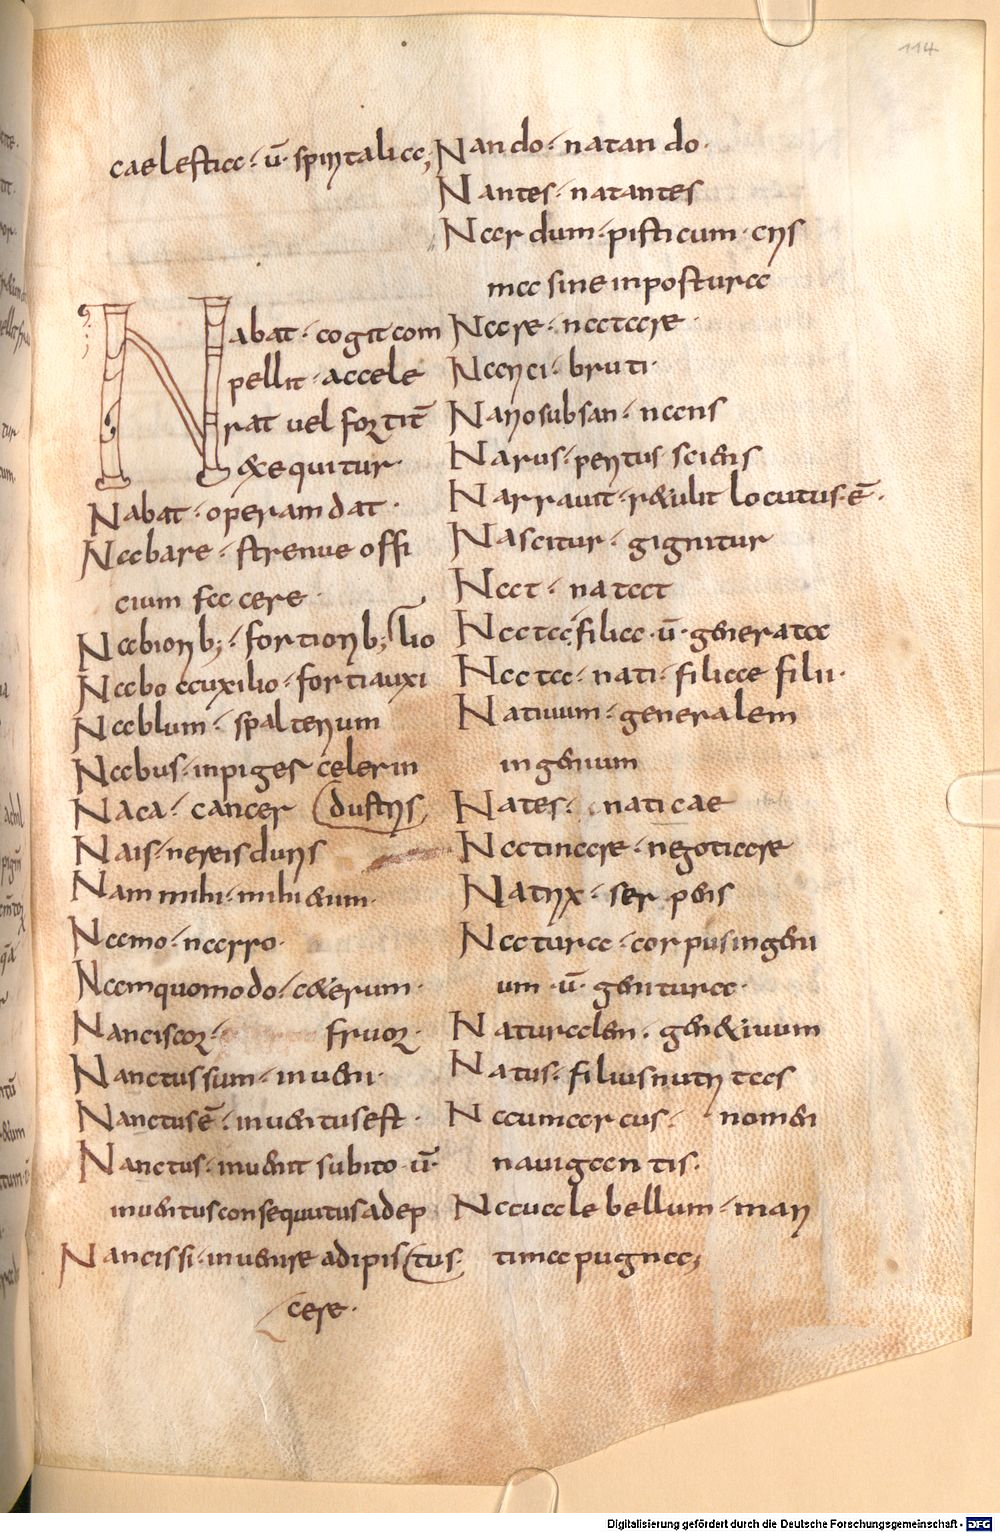 114
caelestia· ū· spiritalia;
Nabat· cogit com
pellit· accele
rat uel fortit̄
exequitur·
Nabat· operam dat·
Nabare· strenue offi
cium facere·
Nabiorib;· fortiorib; lio
Nabo auxilio· forti auxi
Nablum· spalterium
Nabus· inpiger celer in
Naca· cancer dustris
Nais· nereis duris
Nam mihi· mihi enim·
Namo· narro·
Nam quomodo· ceterum·
Nanciscor· fruor·
Nanctus sum· inueni·
Nanctus ē· inuentus est·
Nanctus· inuenit subito· ū·
inuentus consequutus adep
Nancissi· inuenire adipis tus·
cere·
Nando· natando·
Nantes· natantes
Nardum· pisticum· eris
ma sine inpostura
Nare· natare·
Narici· bruti·
Nariosubsan· nans
Narus· peritus sciens
Narrauit· retulit locutus ē·
Nascitur· gignitur
Nat· natat
Nata· filia· ū· generata
Natae· nati· filiae filii·
Natiuum· generalem
ingenium
Nates· naticae
Natinare· negotiare
Natrix· serpens
Natura· corpus ingeni
um· ū· genitura·
Naturalen· genetiuum
Natus· filius nutritas
Naumarcus· nomen
nauigantis·
Nauale bellum· mari
tima pugna;
Digitalisierung gefördert durch die Deutsche Forschungsgemeinschaft - DFG